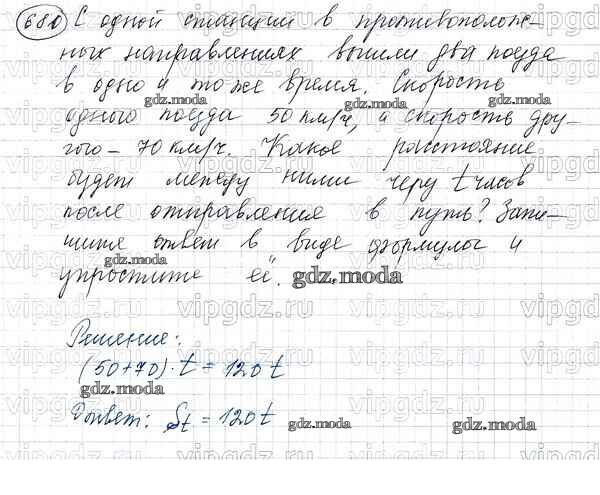 680 С одной станции в противополож-
ных направлениях вышли два поезда
в одно и тоже время. Скорость
одного поезда 50 км/ч, а скорость дру-
гого – 70 км/ч. Какое расстояние
будет между ними через t часов
после отправления в путь? Запи-
шите ответ в виде формулы и
упростите её.
Решение:
(50+70)·t = 120t
Ответ: St = 120t
gdz.moda
vipgdz.ru